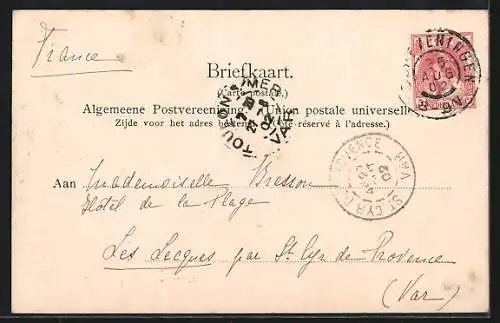 France
Briefkaart.
(Carte postale.)
Algemeene Postvereeniging Union postale universelle
Zijde voor het adres bestemd. réservé à l'adresse.)
Aan Mademoiselle Bresson
Hôtel de la Plage
Les Lecques par St Cyr de Provence
(Var)
AUG
02
TOULON MER
VAR
ST CYR
VAR
02